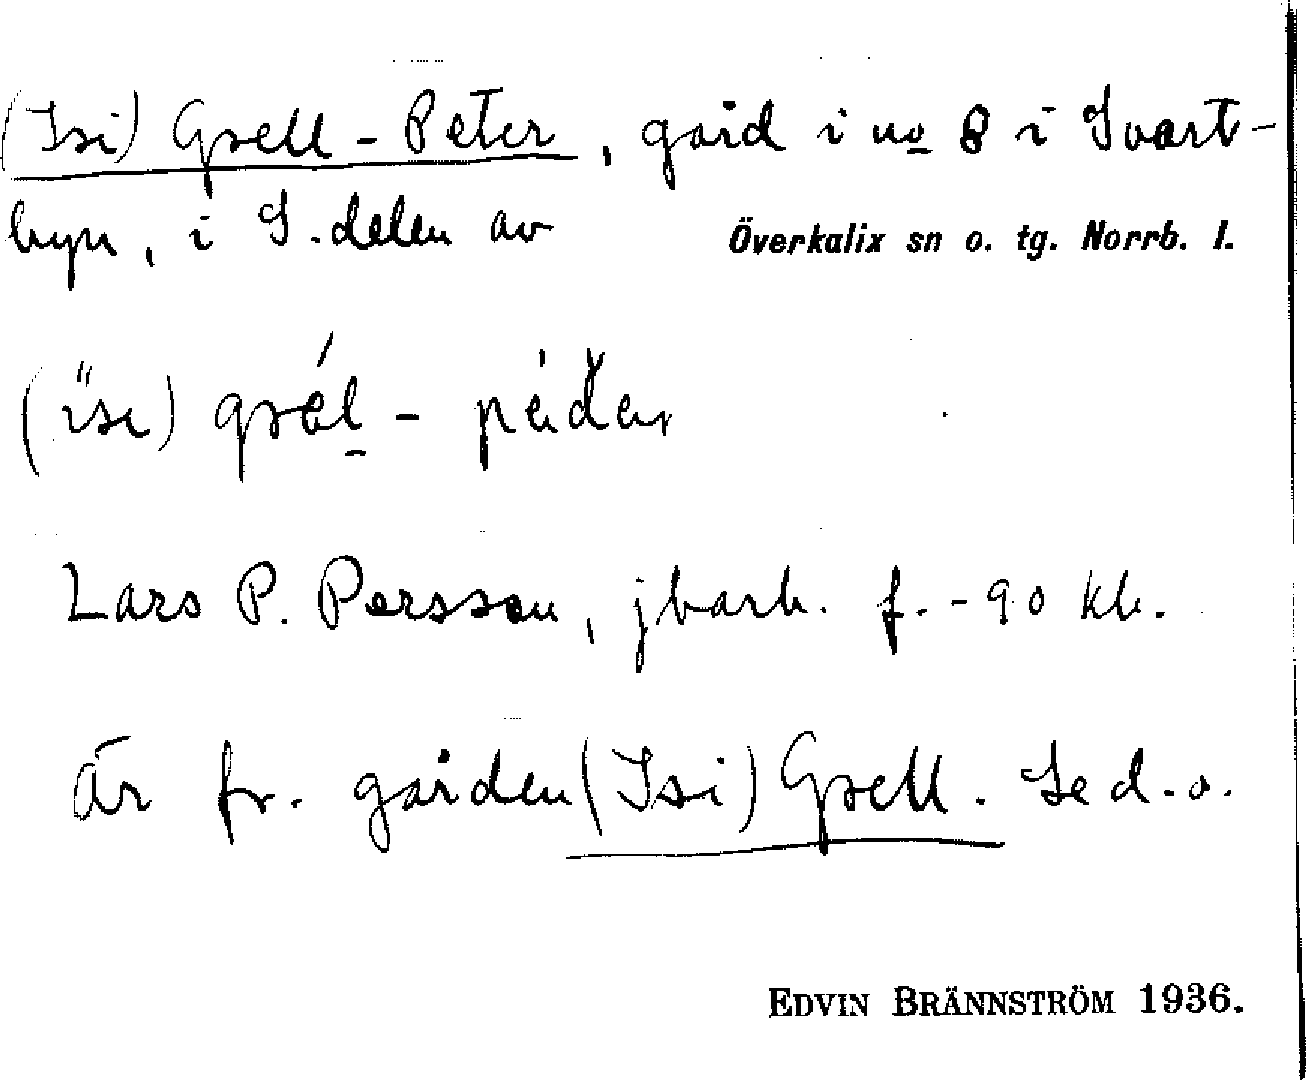 (Isi) Grell-Peter, gård i no 8 i Svart-
byn, i S. delen av Överkalix sn o. tg. Norrb. l.
Lars P. Persson, jbarb. f. -90 kb.
är fr. gården (Isi) Grell. Se d.o.
EDVIN BRÄNNSTRÖM 1936.